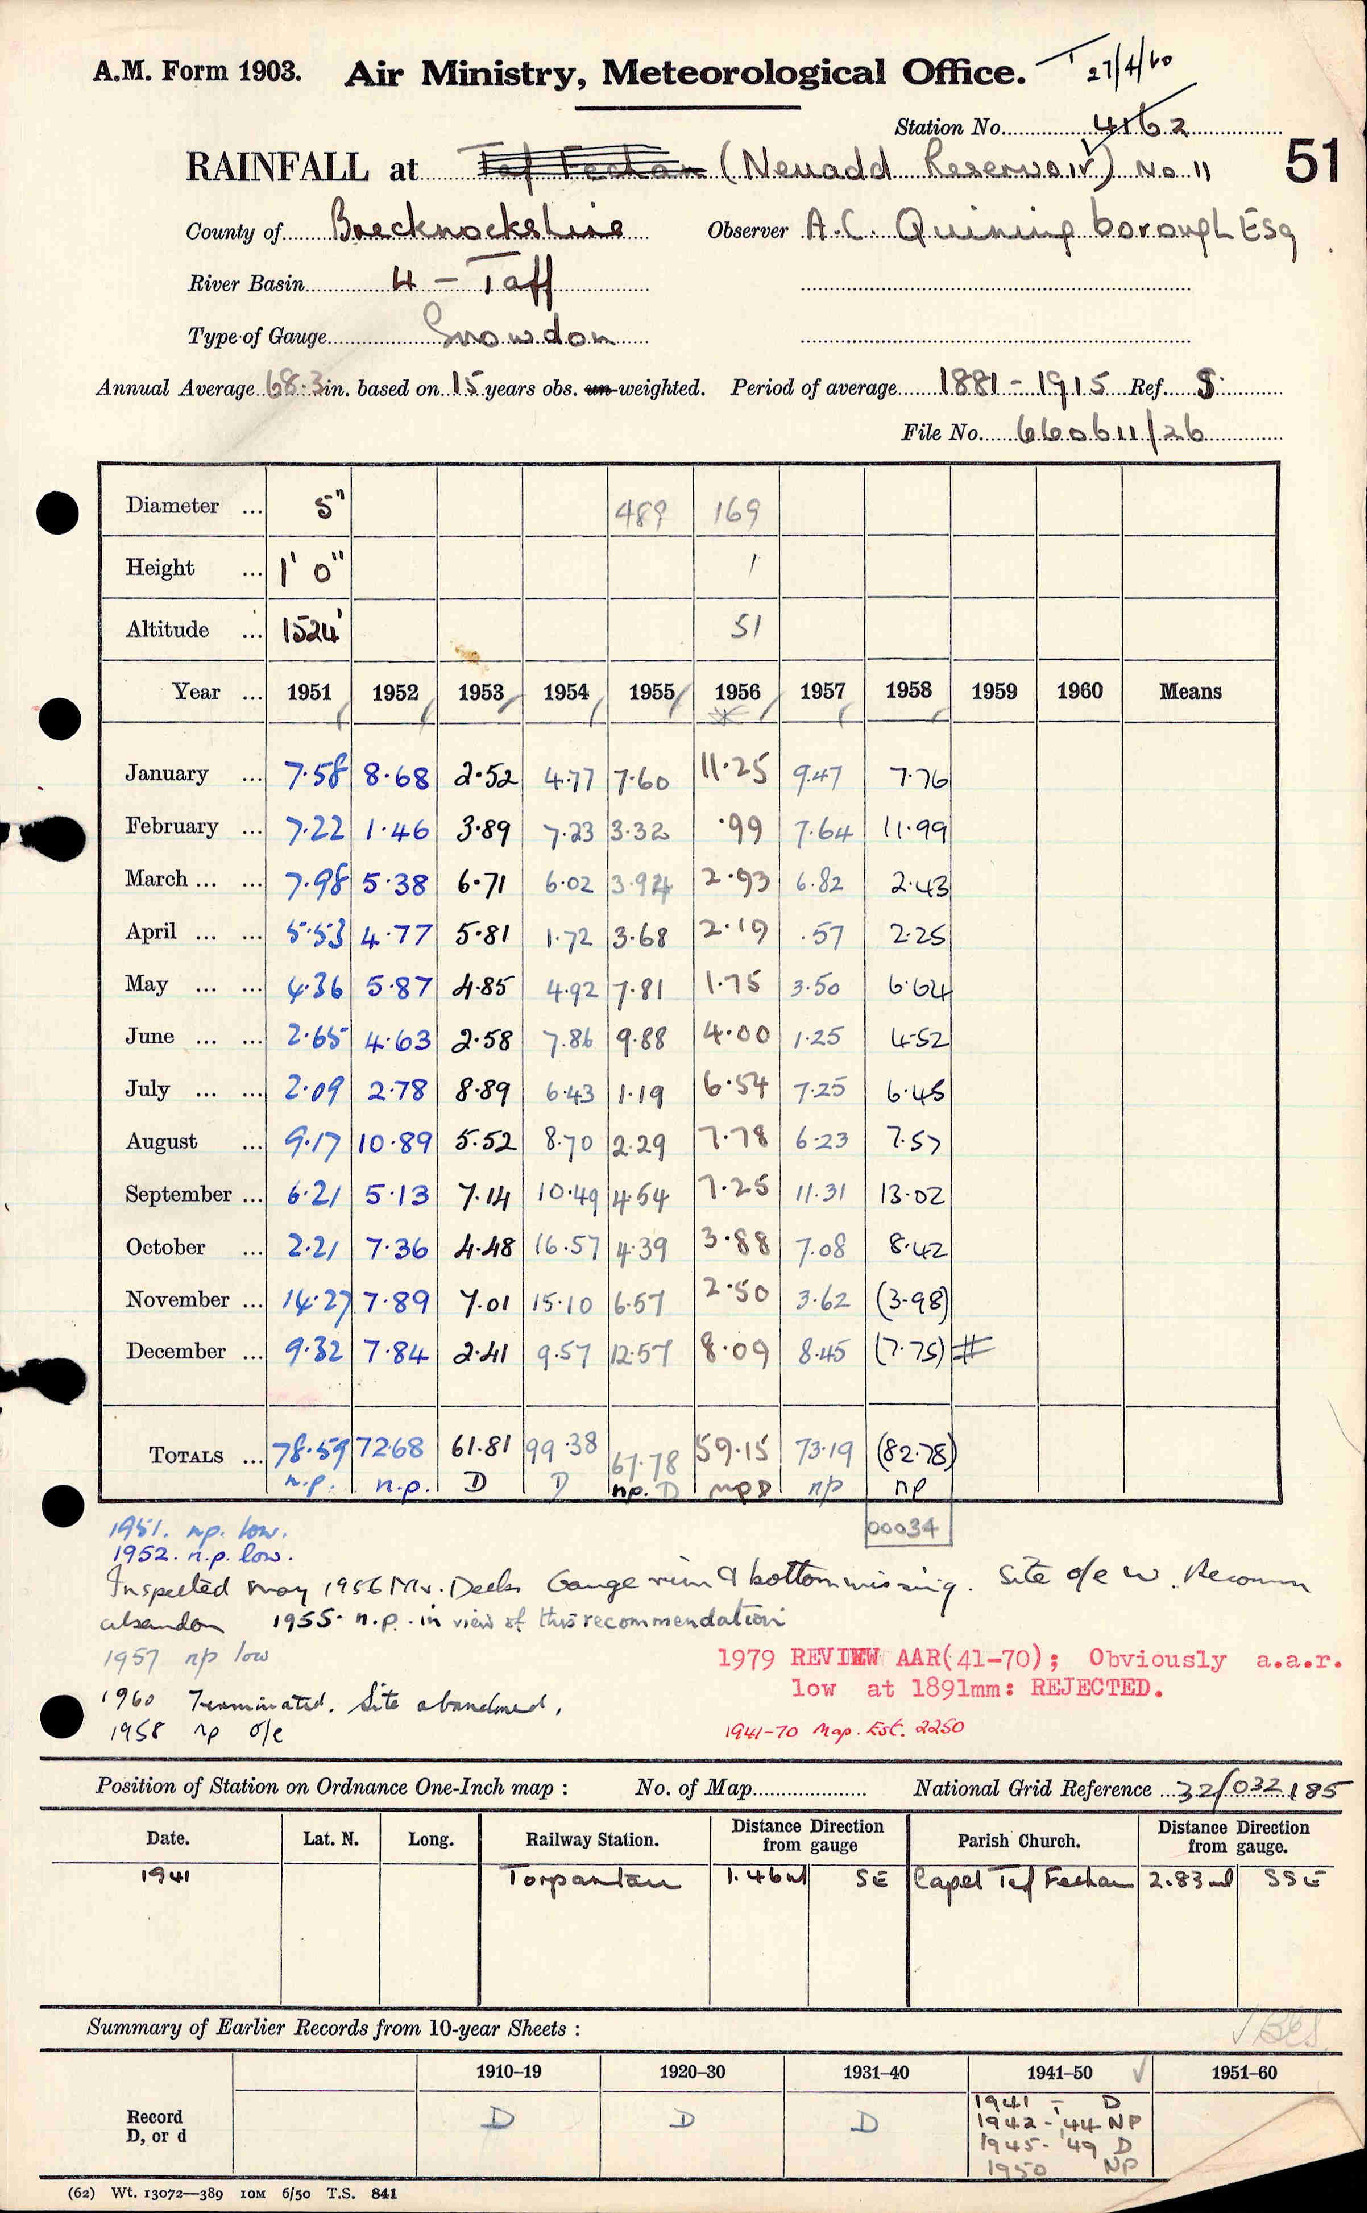 A.M. Form 1903. Air Ministry, Meteorological Office. T 27/4/60
Station No. 4162
RAINFALL at Taf Fechan (Neuadd Reservoir) No 11 51
County of Brecknockshire Observer A.C. Quiningborough Esq
River Basin 4 - Taff
Type of Gauge Snowdon
Annual Average 68.3 in. based on 15 years obs. un-weighted. Period of average 1881-1915 Ref. S.
File No. 660611/26
Diameter ... 5" 489 169
Height ... 1' 0" 1
Altitude ... 1524' 51
Year ... 1951 1952 1953 1954 1955 1956 1957 1958 1959 1960 Means
January ... 7.58 8.68 2.52 4.77 7.60 11.25 9.47 7.76
February ... 7.22 1.46 3.89 7.23 3.32 .99 7.64 11.99
March ... ... 7.98 5.38 6.71 6.02 3.94 2.93 6.82 2.43
April ... ... 5.53 4.77 5.81 1.72 3.68 2.19 .57 2.25
May ... ... 4.36 5.87 4.85 4.92 7.81 1.75 3.50 6.64
June ... ... 2.65 4.63 2.58 7.86 9.88 4.00 1.25 4.52
July ... ... 2.09 2.78 8.89 6.43 1.19 6.54 7.25 6.45
August ... 9.17 10.89 5.52 8.70 2.29 7.78 6.23 7.57
September ... 6.21 5.13 7.14 10.49 4.54 7.25 11.31 13.02
October ... 2.21 7.36 4.48 16.57 4.39 3.88 7.08 8.42
November ... 14.27 7.89 7.01 15.10 6.57 2.50 3.62 (3.98)
December ... 9.32 7.84 2.41 9.57 12.57 8.09 8.45 (7.75) #
TOTALS ... 78.59 72.68 61.81 99.38 67.78 59.15 73.19 (82.78)
n.p. n.p. D D np. D np D np np
00034
1951. np. low.
1952. n.p. low.
Inspected May 1956 Mr. Deeks Gauge rim & bottom missing. Site o/e W. Recomm
abandon 1955. n.p. in view of this recommendation
1957 np low
1960 Terminated. Site abandoned.
1958 np o/e
1979 REVIEW AAR(41-70); Obviously a.a.r.
low at 1891mm: REJECTED.
1941-70 Map. Est. 2250
Position of Station on Ordnance One-Inch map : No. of Map National Grid Reference 32/032185
Date. Lat. N. Long. Railway Station. Distance from gauge Direction Parish Church. Distance from gauge. Direction
1941 Torpantau 1.46 ml SE Capel Taf Fechan 2.83 ml SSE
Summary of Earlier Records from 10-year Sheets :
1910–19 1920–30 1931–40 1941–50 1951–60
Record
D, or d
D D D
1941 - D
1942-'44 NP
1945-'49 D
1950 NP
(62) Wt. 13072—389 10M 6/50 T.S. 841